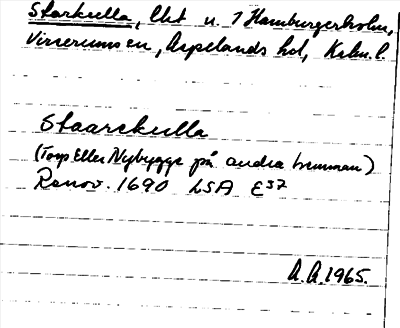 Starkulla, Uht u. 1 Hamburgerholm,
Virserums sn, Aspelands hd, Kalm. l.
Staarekulla
(Torp Eller Nybygge på andra hemman)
Renov. 1690 LSA E37
A.A. 1965.